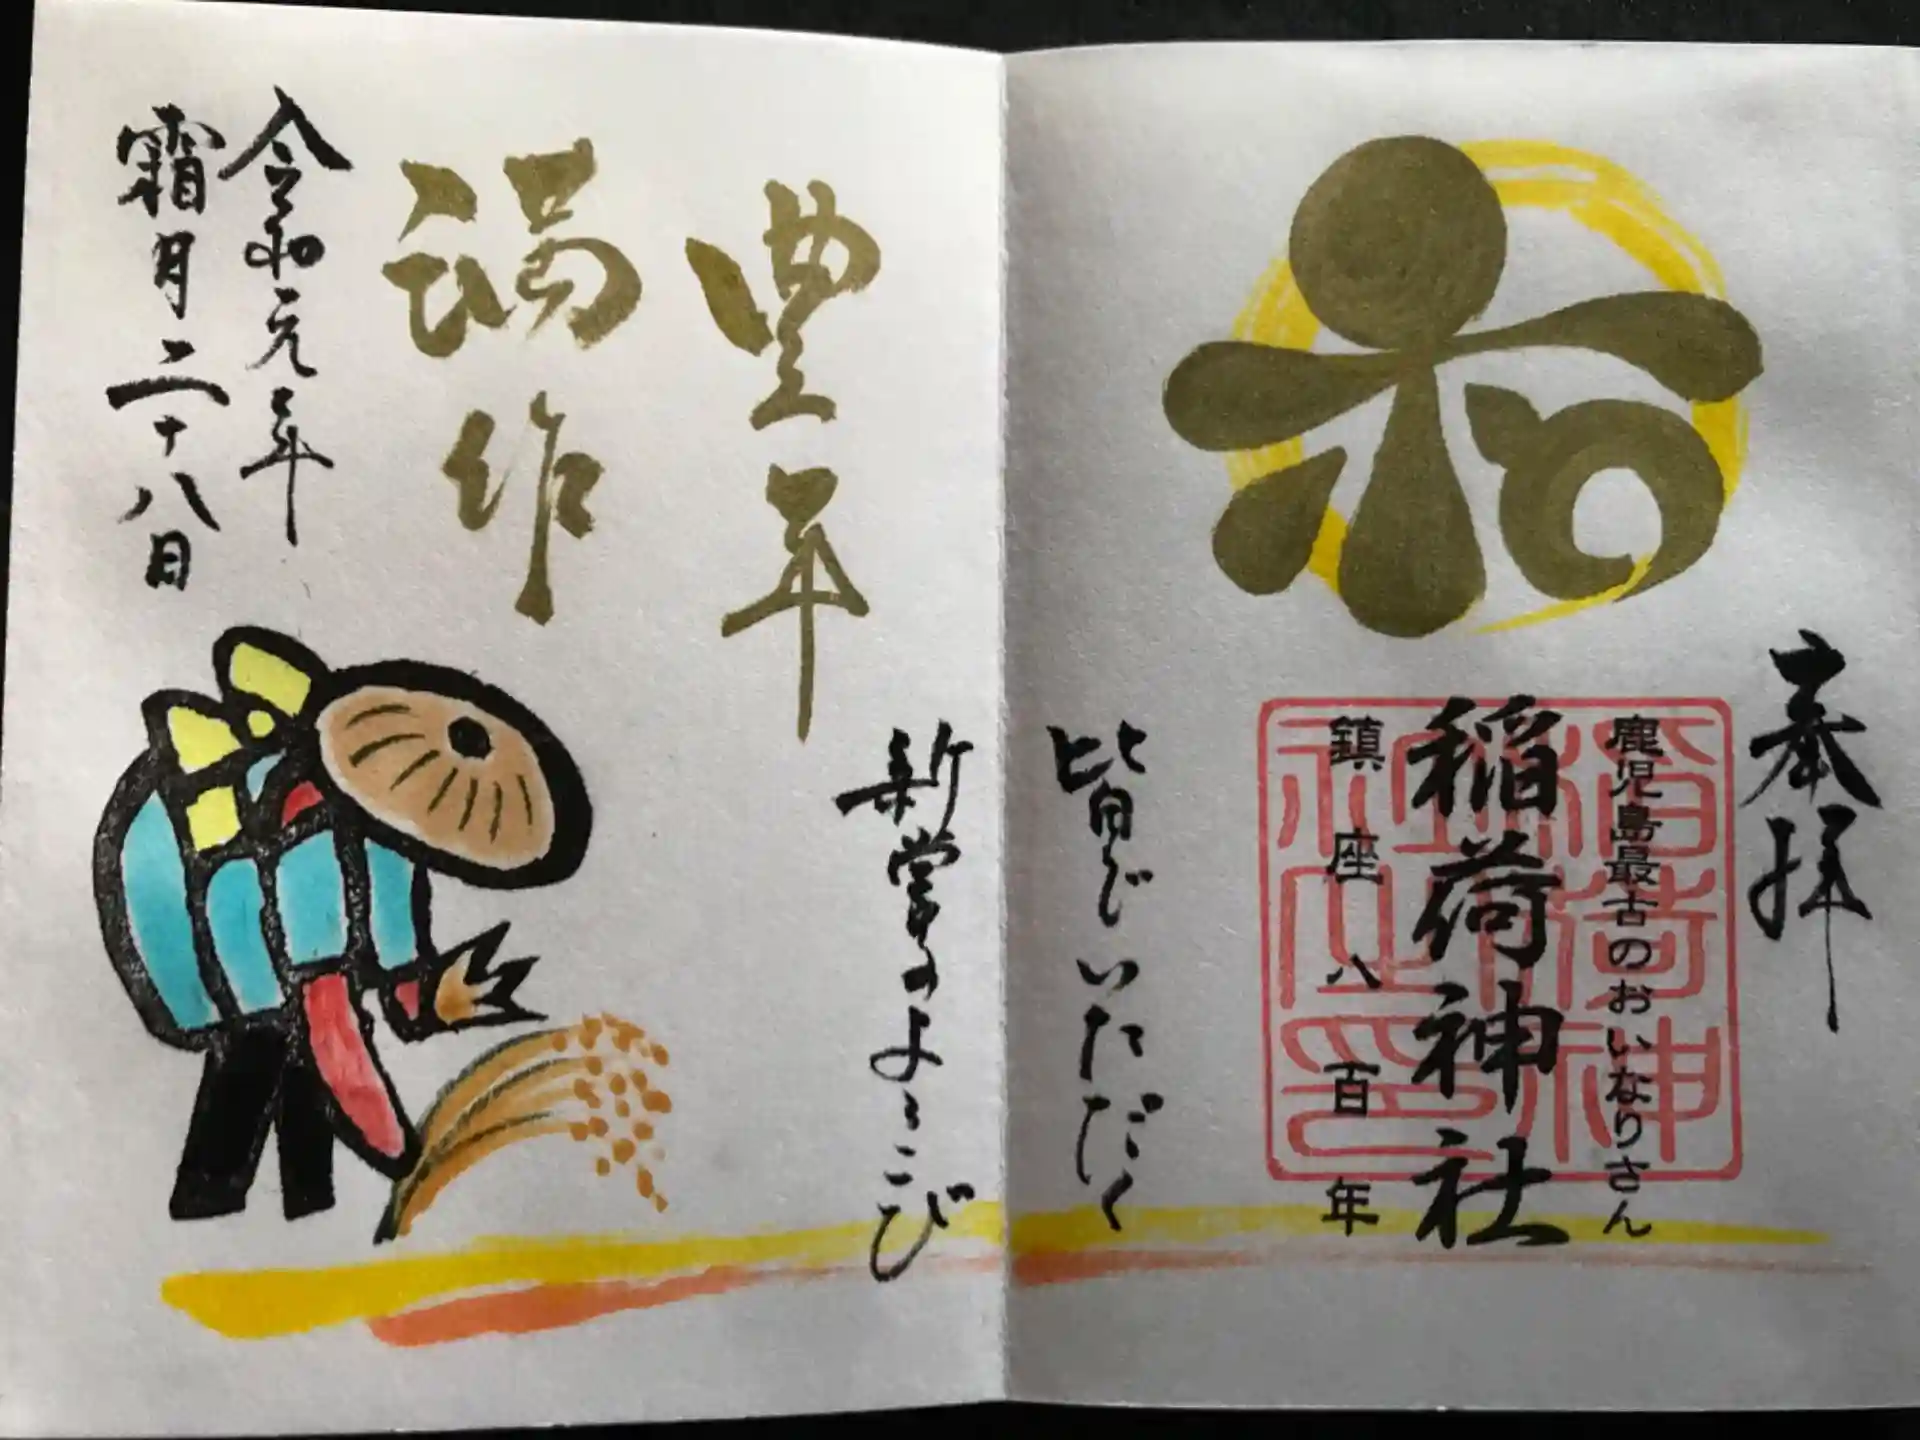 奉拝
鹿児島最古のおいなりさん
稲荷神社
鎮座八百年
稲荷神
社之印
皆でいただく
新嘗のよろこび
豊年
満作
令和元年
霜月二十八日